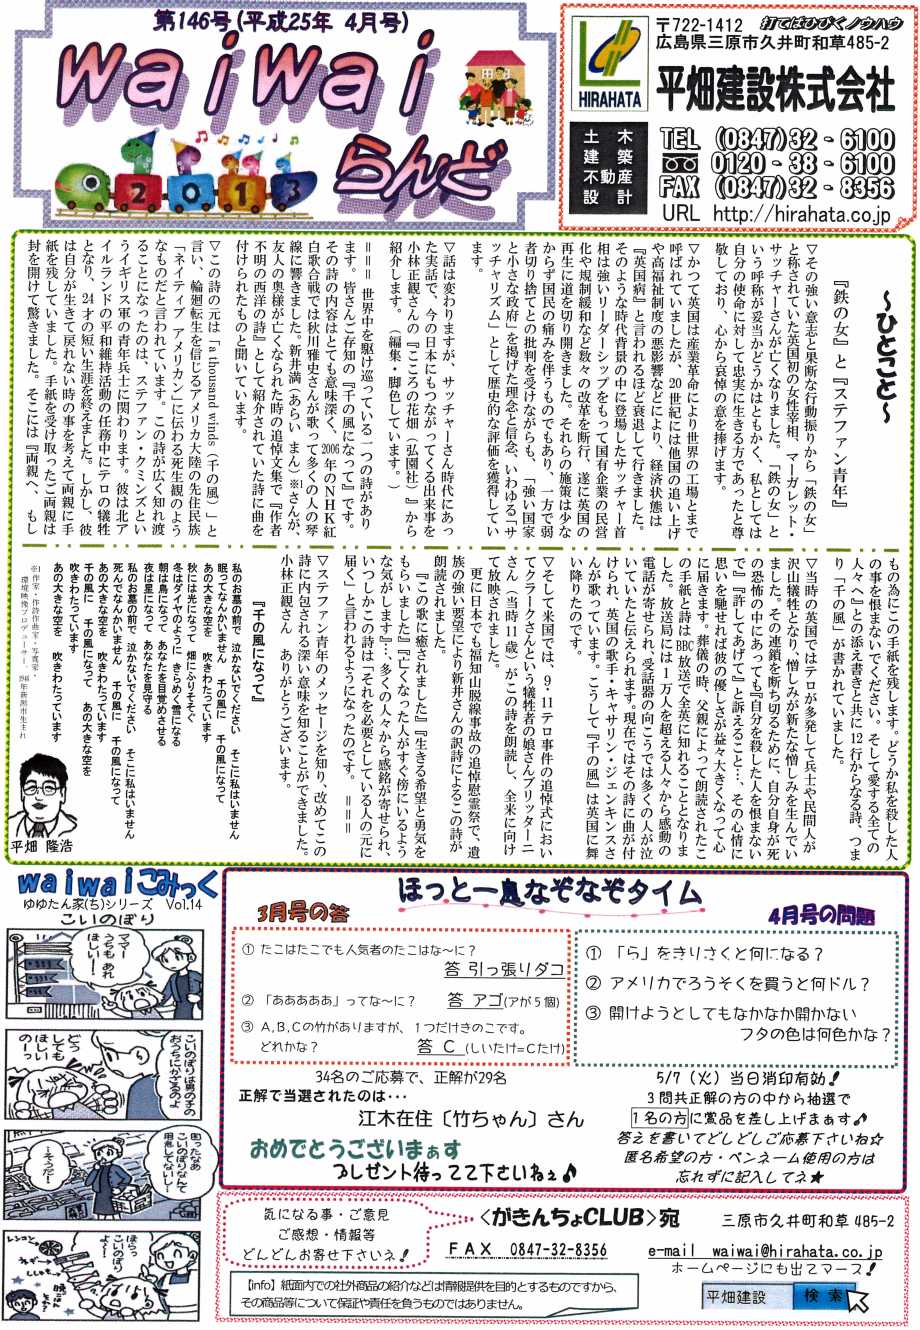 第146号(平成25年 4月号)
waiwai
らんど
2013
HIRAHATA
〒722-1412 打てばひびくノウハウ
広島県三原市久井町和草485-2
平畑建設株式会社
土木
建築
不動産
設計
TEL (0847)32-6100
0120-38-6100
FAX (0847)32-8356
URL http://hirahata.co.jp
～ひとこと～
『鉄の女』と『ステファン青年』
▽その強い意志と果断な行動振りから「鉄の女」
と称されていた英国初の女性宰相、マーガレット・
サッチャーさんが亡くなりました。「鉄の女」と
いう呼称が妥当かどうかはともかく、私としては
自分の使命に対して忠実に生きる方であったと尊
敬しており、心から哀悼の意を捧げます。
▽かつて英国は産業革命により世界の工場とまで
呼ばれていましたが、20世紀には他国の追い上げ
や高福祉制度の悪影響などにより、経済状態は
『英国病』と言われるほど衰退して行きました。
そのような時代背景の中に登場したサッチャー首
相は強いリーダーシップをもって国有企業の民営
化や規制緩和など数々の改革を断行、遂に英国の
再生に道を切り開きました。それらの施策は少な
からず国民の痛みを伴うものでもあり、一方で弱
者切り捨てとの批判を受けながらも、「強い国家
と小さな政府」を掲げた理念と信念、いわゆる「サ
ッチャリズム」として歴史的な評価を獲得してい
ます。
▽話は変わりますが、サッチャーさん時代にあっ
た実話で、今の日本にもつながってくる出来事を
小林正観さんの『こころの花畑(弘園社)』から
紹介します。(編集・脚色しています。)
===　世界中を駆け巡っている一つの詩があり
ます。皆さんご存知の『千の風になって』です。
その詩の内容はとても意味深く、2006年のNHK紅
白歌合戦では秋川雅史さんが歌って多くの人の琴
線に響きました。新井満(あらい まん)※1さんが、
友人の奥様が亡くなられた時の追悼文集で『作者
不明の西洋の詩』として紹介されていた詩に曲を
付けられたものと聞いています。
▽この詩の元は「a thousand winds(千の風)」と
言い、輪廻転生を信じるアメリカ大陸の先住民族
「ネイティブ アメリカン」に伝わる死生観のよう
なものだと言われています。この詩が広く知れ渡
ることになったのは、ステファン・クミンズとい
うイギリス軍の青年兵士に関わります。彼は北ア
イルランドの平和維持活動の任務中にテロの犠牲
となり、24才の短い生涯を終えました。しかし、彼
は自分が生きて戻れない時の事を考えて両親に手
紙を残していました。手紙を受け取ったご両親は
封を開けて驚きました。そこには『両親へ、　もし
もの為にこの手紙を残します。どうか私を殺した人
の事を恨まないでください。そして愛する全ての
人々へ』との添え書きと共に12行からなる詩、つま
り「千の風」が書かれていました。
▽当時の英国ではテロが多発して兵士や民間人が
沢山犠牲となり、憎しみが新たな憎しみを生んでい
ました。その連鎖を断ち切るために、自分自身が死
の恐怖の中にあっても『自分を殺した人を恨まない
で』『許してあげて』と訴えること…、その心情に
思いを馳せれば彼の優しさが益々大きくなって心
に届きます。葬儀の時、父親によって朗読されたこ
の手紙と詩はBBC放送で全英に知れることとなりま
した。放送局には1万人を超える人々から感動の
電話が寄せられ、受話器の向こうでは多くの人が泣
いていたと伝えられます。現在ではその詩に曲が付
けられ、英国の歌手・キャサリン・ジェンキンスさ
んが歌っています。こうして『千の風』は英国に舞
い降りたのです。
▽そして米国では、9・11テロ事件の追悼式におい
てクラークさんという犠牲者の娘さんブリッターニ
さん(当時11歳)がこの詩を朗読し、全米に向け
て放映されました。
更に日本でも福知山脱線事故の追悼慰霊祭で、遺
族の強い要望により新井さんの訳詩によるこの詩が
朗読されました。
『この歌に癒されました』『生きる希望と勇気を
もらいました』『亡くなった人がすぐ傍にいるよう
な気がします』…、多くの人々から感銘が寄せられ、
いつしかこの詩は「それを必要としている人の元に
届く」と言われるようになったのです。　===
▽ステファン青年のメッセージを知り、改めてこの
詩に内包される深い意味を知ることができました。
小林正観さん　ありがとうございます。
『千の風になって』
私のお墓の前で 泣かないでください　そこに私はいません
眠ってなんかいません　千の風に　千の風になって
あの大きな空を　吹きわたっています
秋には光になって　畑にふりそそぐ
冬はダイヤのように きらめく雪になる
朝は鳥になって　あなたを目覚めさせる
夜は星になって　あなたを見守る
私のお墓の前で 泣かないでください　そこに私はいません
死んでなんかいません　千の風に　千の風になって
あの大きな空を　吹きわたっています
千の風に　千の風になって　あの大きな空を
吹きわたっています
あの大きな空を　吹きわたっています
※作家・作詩作曲家・写真家・
環境映像プロデューサー、
1946年新潟市生まれ
平畑 隆浩
waiwaiこみっく
ゆゆたん家(ち)シリーズ Vol.14
こいのぼり
ママー
うちもあれ
ほしい～！
こいのぼりは男の子の
おうちにかざるのよ
どー
しても
ほしい
のーっ
困ったなあ
こいのぼりなんて
用意してないし…
…そうだ！
ほらっ
こいのぼり
よ～！
レンコン
ねぎ
ししゃも
晩ごはん
ほっと一息なぞなぞタイム
3月号の答
① たこはたこでも人気者のたこはな～に？
答 引っ張りダコ
② 「あああああ」ってな～に？　答 アゴ(アが5個)
③ A,B,Cの竹がありますが、1つだけきのこです。
どれかな？　答 C (しいたけ=Cたけ)
4月号の問題
① 「ら」をきりさくと何になる？
② アメリカでろうそくを買うと何ドル？
③ 開けようとしてもなかなか開かない
フタの色は何色かな？
34名のご応募で、正解が29名
正解で当選されたのは・・・
江木在住〔竹ちゃん〕さん
おめでとうございまぁす
プレゼント待ってて下さいねぇ♪
5/7(火)当日消印有効！
3問共正解の方の中から抽選で
1名の方に賞品を差し上げまぁす♪
答えを書いてどしどしご応募下さいね☆
匿名希望の方・ペンネーム使用の方は
忘れずに記入してネ★
気になる事・ご意見
ご感想・情報等
どんどんお寄せ下さいネ！
<がきんちょCLUB>宛 三原市久井町和草485-2
FAX 0847-32-8356 e-mail waiwai@hirahata.co.jp
ホームページにも出てマース！
【info】紙面内での社外商品の紹介などは情報提供を目的とするものですから、
その商品等について保証や責任を負うものではありません。
平畑建設 検索